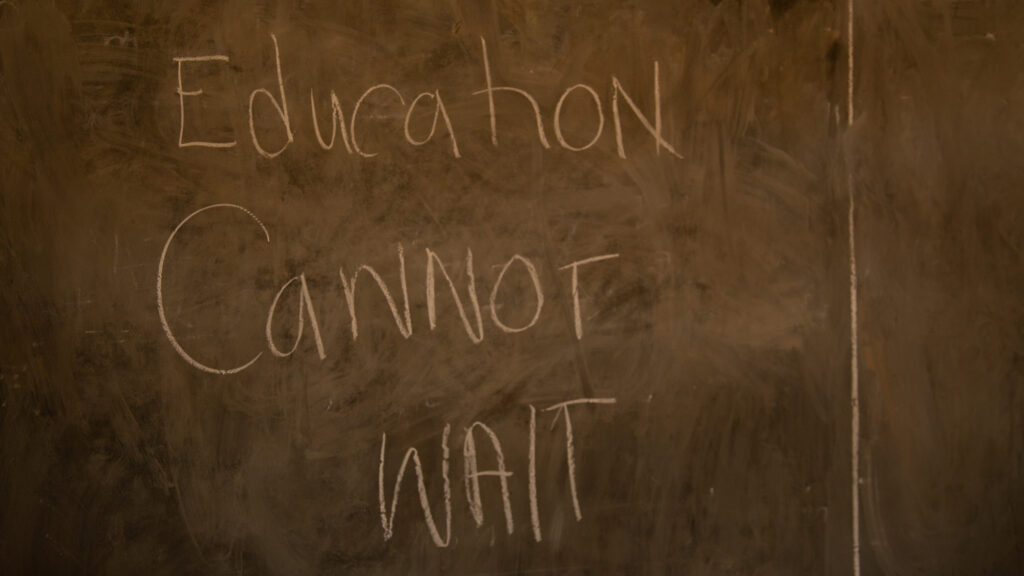 Education
Cannot
WAIT